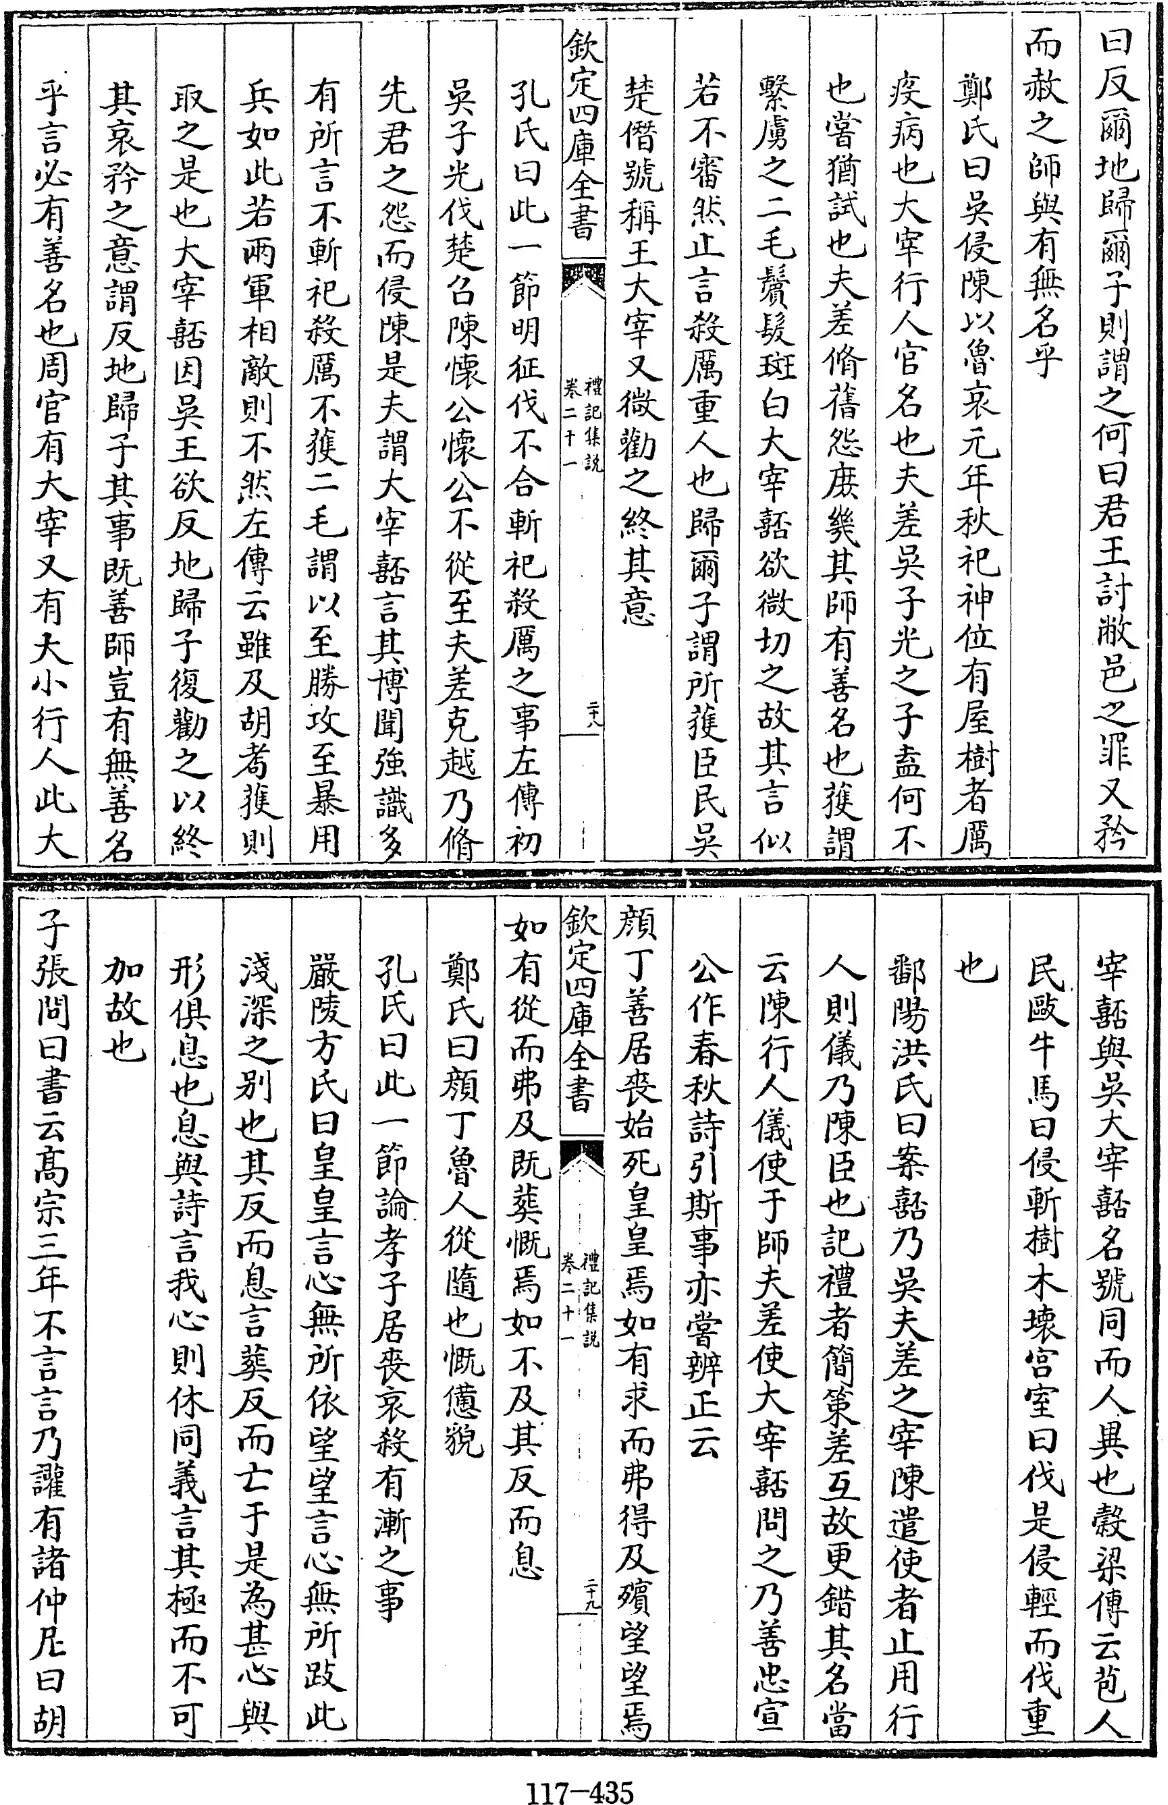 曰反爾地歸爾子則謂之何曰君王討敝邑之罪又矜
而赦之師與有無名乎
鄭氏曰吳侵陳以魯哀元年秋祀神位有屋樹者厲
疫病也大宰行人官名也夫差吳子光之子盍何不
也嘗猶試也夫差脩舊怨庶幾其師有善名也獲謂
繫虜之二毛鬢髮斑白大宰嚭欲微切之故其言似
若不審然止言殺厲重人也歸爾子謂所獲臣民吳
楚僭號稱王大宰又微勸之終其意
欽定四庫全書
禮記集說
卷二十一
二十八
孔氏曰此一節明征伐不合斬祀殺厲之事左傳初
吳子光伐楚召陳懷公懷公不從至夫差克越乃脩
先君之怨而侵陳是夫謂大宰嚭言其博聞強識多
有所言不斬祀殺厲不獲二毛謂以至勝攻至暴用
兵如此若兩軍相敵則不然左傳云雖及胡耇獲則
取之是也大宰嚭因吳王欲反地歸子復勸之以終
其哀矜之意謂反地歸子其事既善師豈有無善名
乎言必有善名也周官有大宰又有大小行人此大
宰嚭與吳大宰嚭名號同而人異也穀梁傳云苞人
民毆牛馬曰侵斬樹木壞宮室曰伐是侵輕而伐重
也
鄱陽洪氏曰案嚭乃吳夫差之宰陳遣使者止用行
人則儀乃陳臣也記禮者簡策差互故更錯其名當
云陳行人儀使于師夫差使大宰嚭問之乃善忠宣
公作春秋詩引斯事亦嘗辨正云
顏丁善居喪始死皇皇焉如有求而弗得及殯望望焉
欽定四庫全書
禮記集說
卷二十一
二十九
如有從而弗及既葬慨焉如不及其反而息
鄭氏曰顏丁魯人從隨也慨憊貌
孔氏曰此一節論孝子居喪哀殺有漸之事
嚴陵方氏曰皇皇言心無所依望望言心無所跂此
淺深之別也其反而息言葬反而亡于是為甚心與
形俱息也息與詩言我心則休同義言其極而不可
加故也
子張問曰書云高宗三年不言言乃讙有諸仲尼曰胡
117-435